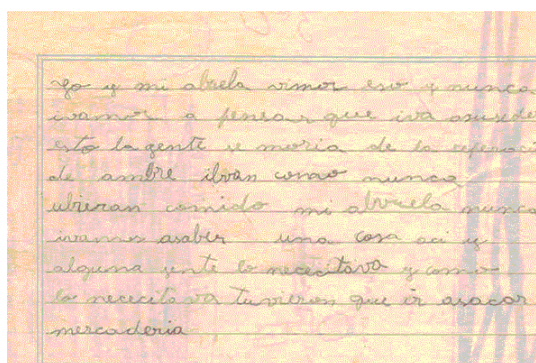 yo y mi abuela vimos eso y nunca
ivamos a pensar que iva asuseder
esto la gente se moria de la
de ambre ibvan como nunca
ubieran comido mi abvuela nunca
ivamos asaber una cosa aci y
alguna jente lo nececitava y como
lo nececitava tuvieron que ir asacar
mercaderia